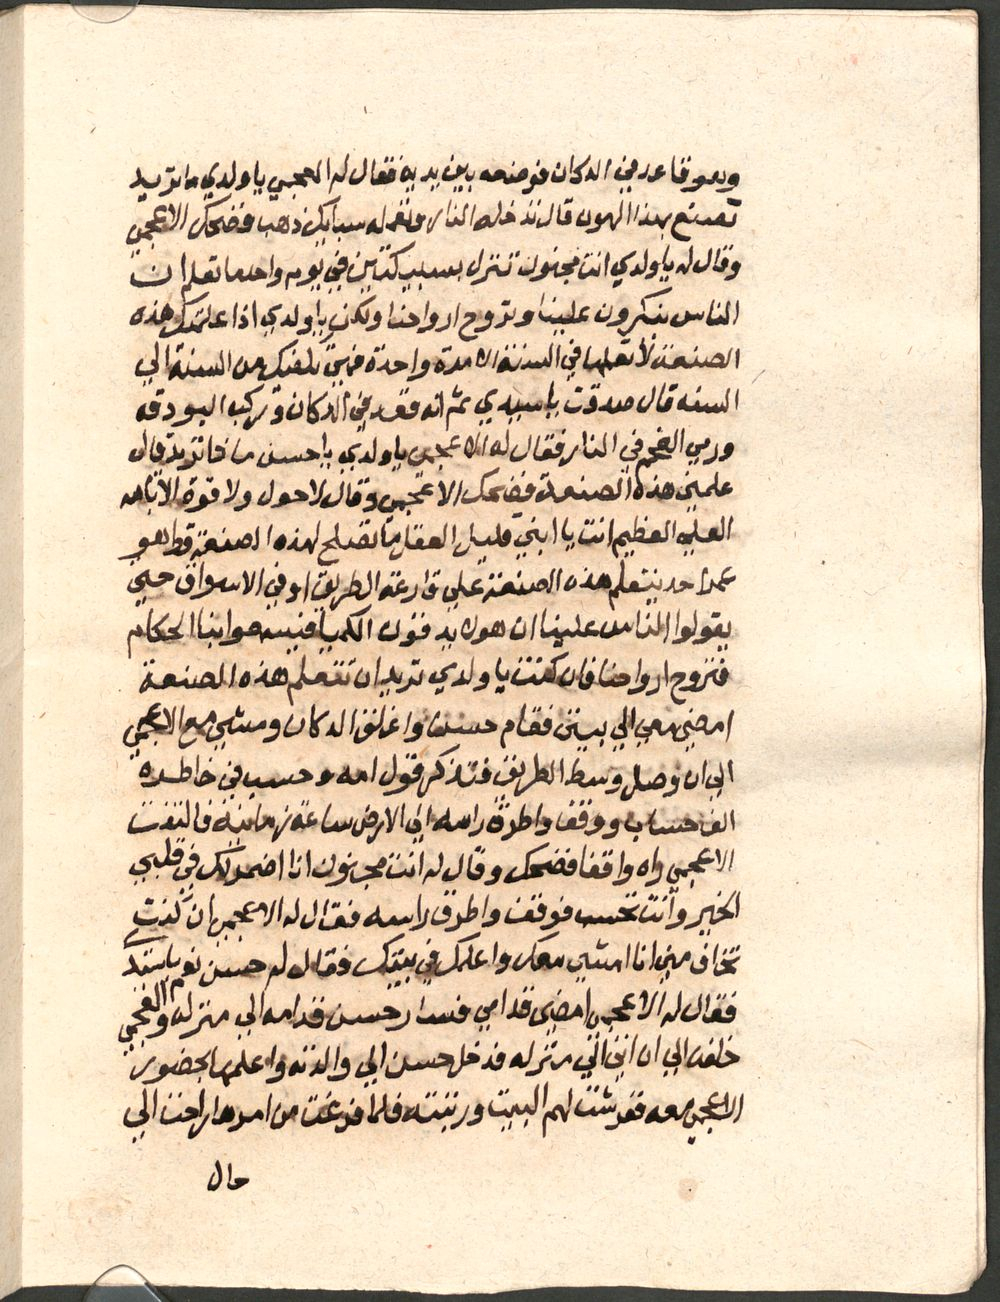 وهو قاعد في الدكان فوضعه بين يديه فقال له العجمي يا ولدي ما تريد
تصنع بهذا الهون قال ندخله النار ونعمله سبايك ذهب فضحك الاعجمي
وقال له يا ولدي انت مجنون تنزل بسبيكتين في يوم واحد ما تعلم ان
الناس ينكرون علينا وتروح ارواحنا ولكن يا ولدي اذا علمتك هذه
الصنعة لا تعملها في السنة الا مرة واحدة فهي تكفيك من السنة الي
السنه قال صدقت يا سيدي ثم انه قعد في الدكان وركب البودقه
ورمي الفحم في النار فقال له الاعجمي يا ولدي يا حسن ماذا تريد قال
علمني هذه الصنعة فضحك الاعجمي وقال لا حول ولا قوة الا بالله
العلي العظيم انت يا ابني قليل العقل ما تصلح لهذه الصنعة قط هو
عمر احد يتعلم هذه الصنعة علي قارعة الطريق او في الاسواق حتي
يقولوا الناس علينا ان هولا يدفنون الكميا فيسمعوا بنا الحكام
فتروح ارواحنا فان كنت يا ولدي تريد ان تتعلم هذه الصنعة
امضي معي الي بيتي فقام حسن واغلق الدكان ومشي مع الاعجمي
الي ان وصل وسط الطريق فتذكر قول امه وحسب في خاطره
الف حساب ووقف واطرق راسه الي الارض ساعة زمانية فالتفت
الاعجمي راه واقفا فضحك وقال له انت مجنون انا اضمر لك في قلبي
الخير وانت تحسب فوقف واطرق راسه فقال له الاعجمي ان كنت
تخاف مني انا امشي معك واعلمك في بيتك فقال له حسن نعم يا سيدي
فقال له الاعجمي امضي قدامي فسار حسن قدامه الي منزله والعجمي
خلفه الي ان اتي الي منزله فدخل حسن الي والدته واعلمها بحضور
الاعجمي معه ففرشت لهم البيت ورتبته فلما فرغت من امرها راحت الي
حال